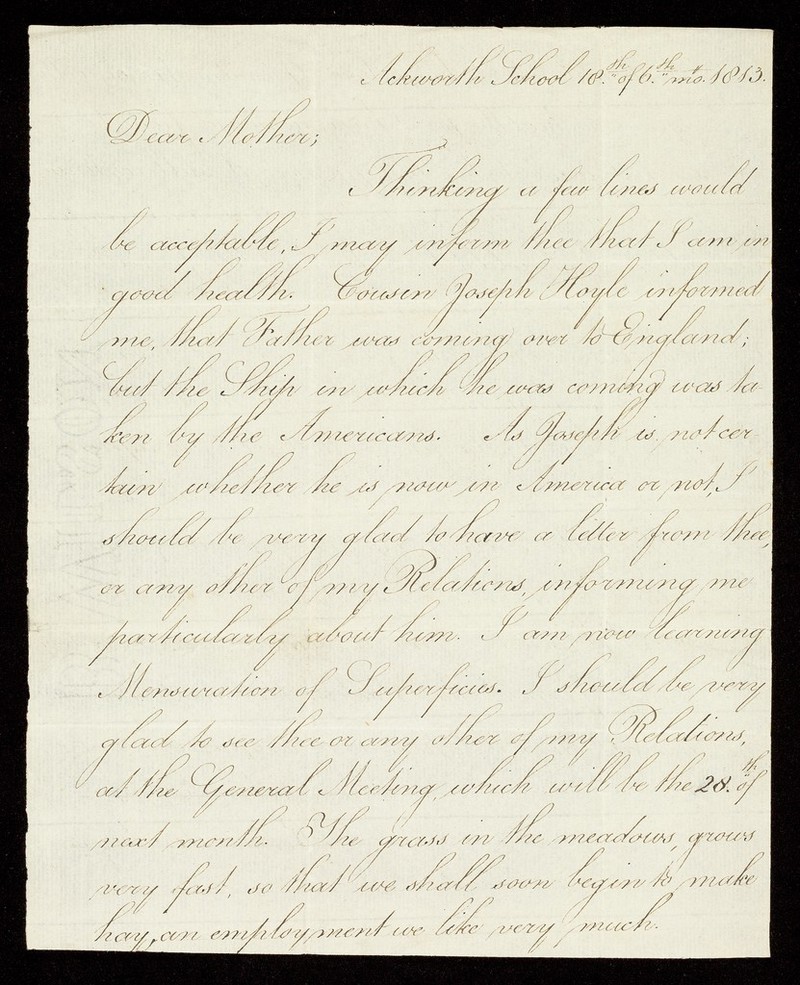 Ackworth School 18.th of 6.th mo. 1813.
Dear Mother;
Thinking a few lines would
be acceptable, I may inform thee that I am in
good health. Cousin Joseph Hoyle informed
me, that Father was coming over to England;
but the Ship in which he was coming was ta-
ken by the Americans. As Joseph is not cer-
tain whether he is now in America or not, I
should be very glad to have a letter from thee,
or any other of my Relations, informing me
particularly about him. I am now learning
Mensuration of Superficies. I should be very
glad to see thee or any other of my Relations,
at the General Meeting, which will be the 28.th of
next month. The grass in the meadows, grows
very fast, so that we shall soon begin to make
hay, an employment we like very much.